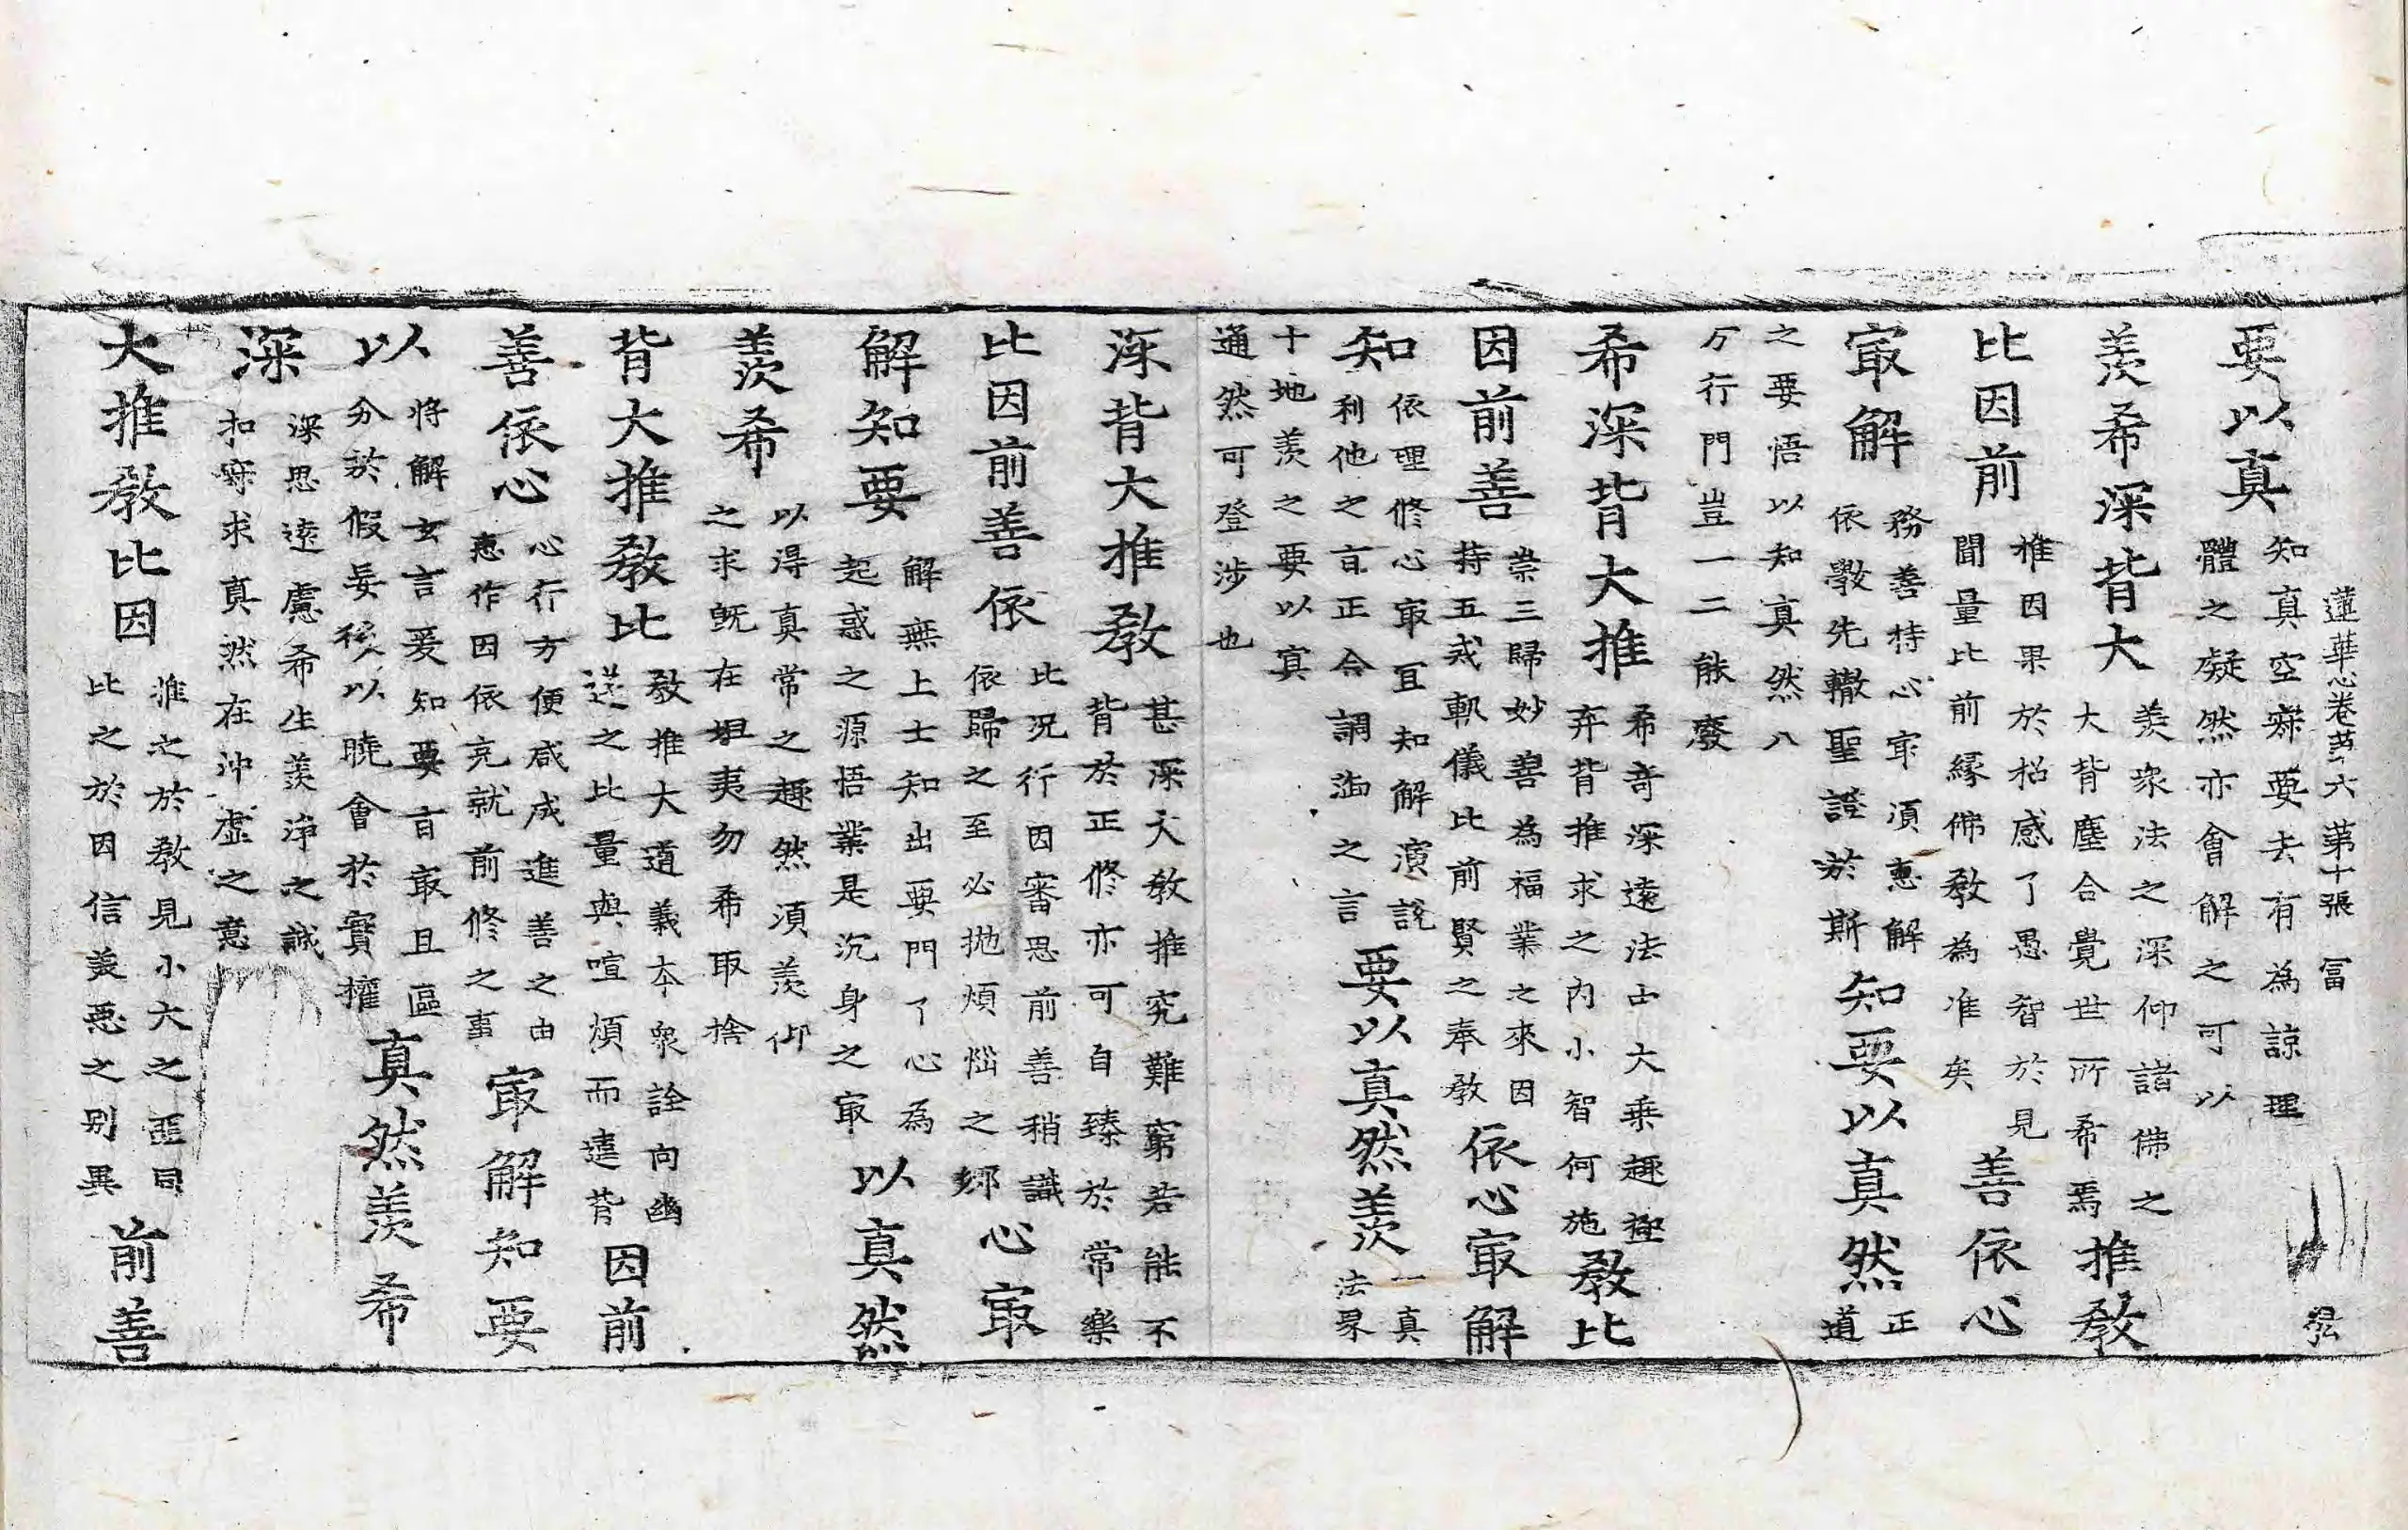 蓮華心卷苐六 苐十張 冨
要以真 知真空寂要去有為諒理
體之凝然亦會解之可以
羨希深背大 羨衆法之深仰諸佛之
大背塵合覺世所希焉 推教
比因前 推因果於招感了愚智於見
聞量比前縁佛教為准矣 善依心
㝡解 務善特心㝡湏惠解
依斆先轍聖證於斯 知要以真然 正道
之要悟以知真然八
万行門豈一二能廢
希深背大推 希奇深遠法士大乗趣極
弃背推求之内小智何施 教比
因前善 崇三歸妙善為福業之來因
持五戒軌儀比前賢之奉教 依心㝡解
知 依理修心㝡冝知解演說
利他之言正合調 之言 要以真然羨 一真法界
十地羨之要以真
通然可登涉也
深背大推教 甚深大教推究難窮若能不
背於正修亦可自臻於常樂
比因前善依 比况行因審思前善稍識
依歸之至必抛煩惱之鄉 心㝡
解知要 解無上士知出要門了心為
起惑之源悟業是沉身之㝡 以真然
羨希 以得真常之趣然湏羨仰
之求旣在坦夷勿希取捨
背大推教比 教推大道義本衆詮向幽
送之比量與喧煩而違背 因前
善依心 心行方便咸成進善之由
惠作因依克就前修之事 㝡解知要
以 將解玄言爰知要旨㝡且區
分於假妄 以曉會於實權 真然羨希
深 深思遠慮希生羨淨之誠
扣寂求真然在沖虛之意
大推教比因 推之於教見小大之 同
比之於因信美惡之别異 前善